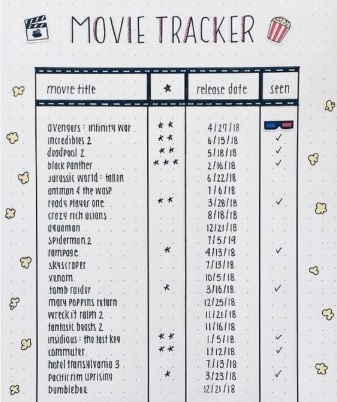 MOVIE TRACKER
movie title ★ release date seen
avengers: infinity war ★★ 4/27/18
incredibles 2 ★★ 6/15/18 ✓
deadpool 2 ★★ 5/18/18 ✓
black panther ★★★ 2/16/18 ✓
Jurassic world: fallen 6/22/18
antman & the wasp 7/6/18
ready player one ★★ 3/28/18 ✓
crazy rich asians 8/18/18
aquaman 12/21/18
spiderman 2 7/5/19
rampage ★ 4/13/18 ✓
skyscraper 7/13/18
venom 10/5/18
tomb raider ★ 3/16/18 ✓
mary poppins return 12/25/18
wreck it ralph 2 11/21/18
fantastic beasts 2 11/16/18
insidious: the last key ★★ 1/5/18 ✓
commuter ★★ 1/12/18 ✓
hotel transylvania 3 7/13/18
pacific rim uprising ★ 3/23/18 ✓
bumblebee 12/21/18